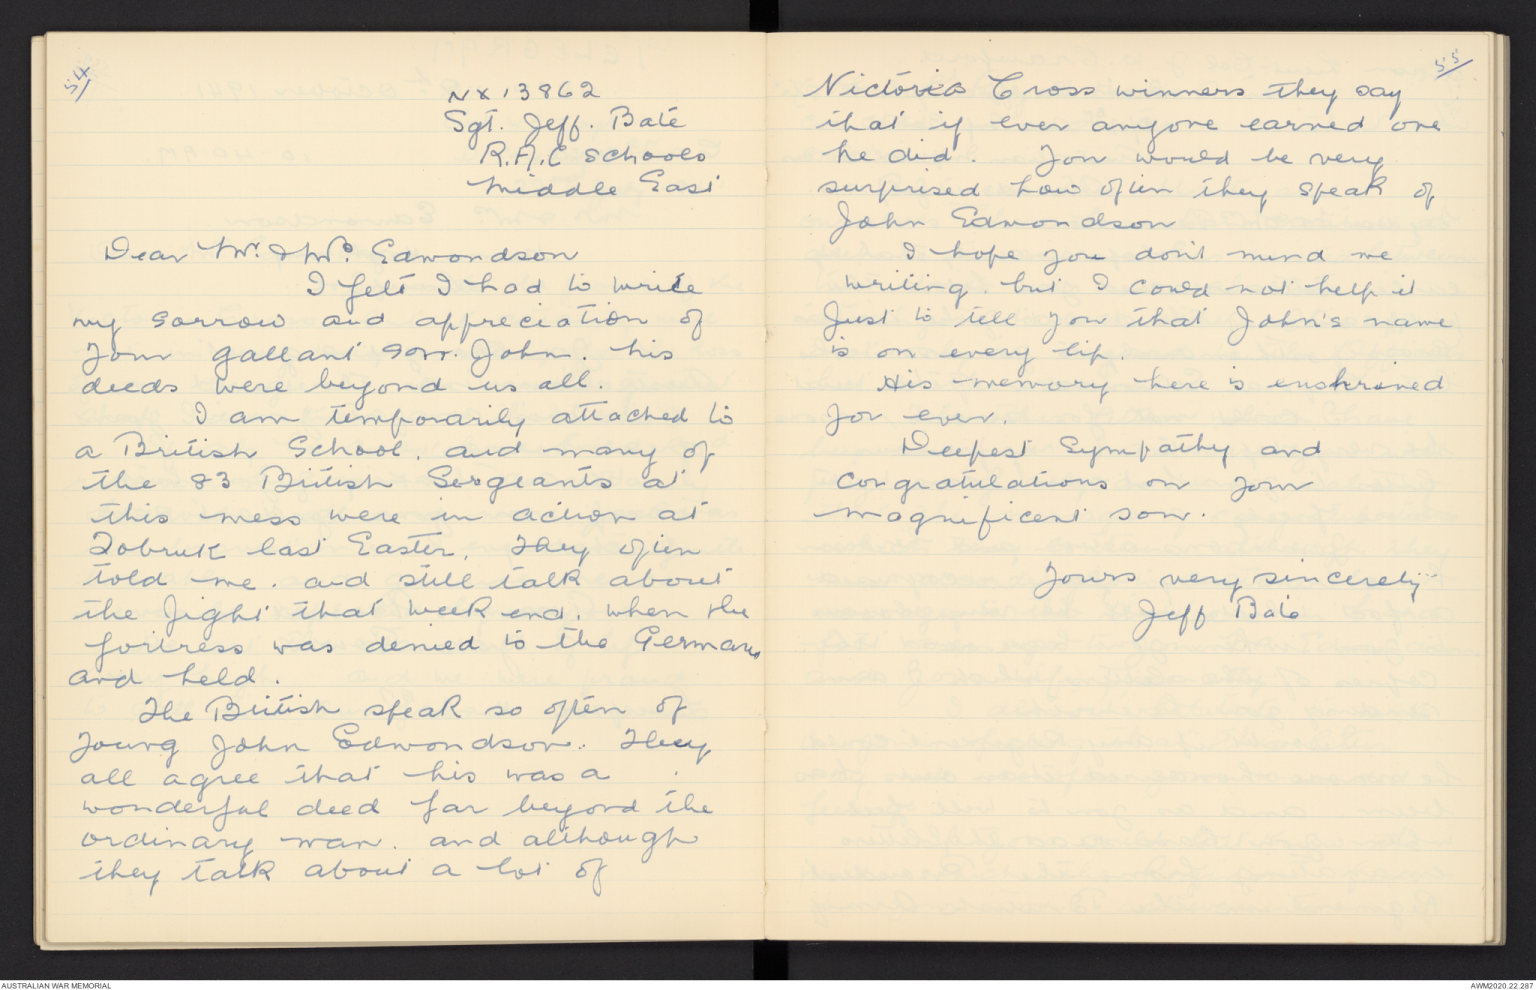 54
NX13862
Sgt. Jeff. Bate
R.A.C Schools
Middle East
Dear Mr. & Mrs. Edmondson
I felt I had to write
my sorrow and appreciation of
your gallant son. John. his
deeds were beyond us all.
I am temporarily attached to
a British School. and many of
the 83 British Sergeants at
this mess were in action at
Tobruk last Easter. They often
told me. and still talk about
the fight that week end. when the
fortress was denied to the Germans
and held.
The British speak so often of
Young John Edmondson. They
all agree that his was a
wonderful deed far beyond the
ordinary man. and although
they talk about a lot of
55
Victoria Cross winners they say
that if ever anyone earned one
he did. You would be very
surprised how often they speak of
John Edmondson
I hope you don't mind me
writing. but I could not help it
Just to tell you that John's name
is on every lip.
His memory here is enshrined
for ever.
Deepest Sympathy and
Congratulations on your
magnificent son.
Yours very sincerely
Jeff Bate
AUSTRALIAN WAR MEMORIAL
AWM2020.22.287